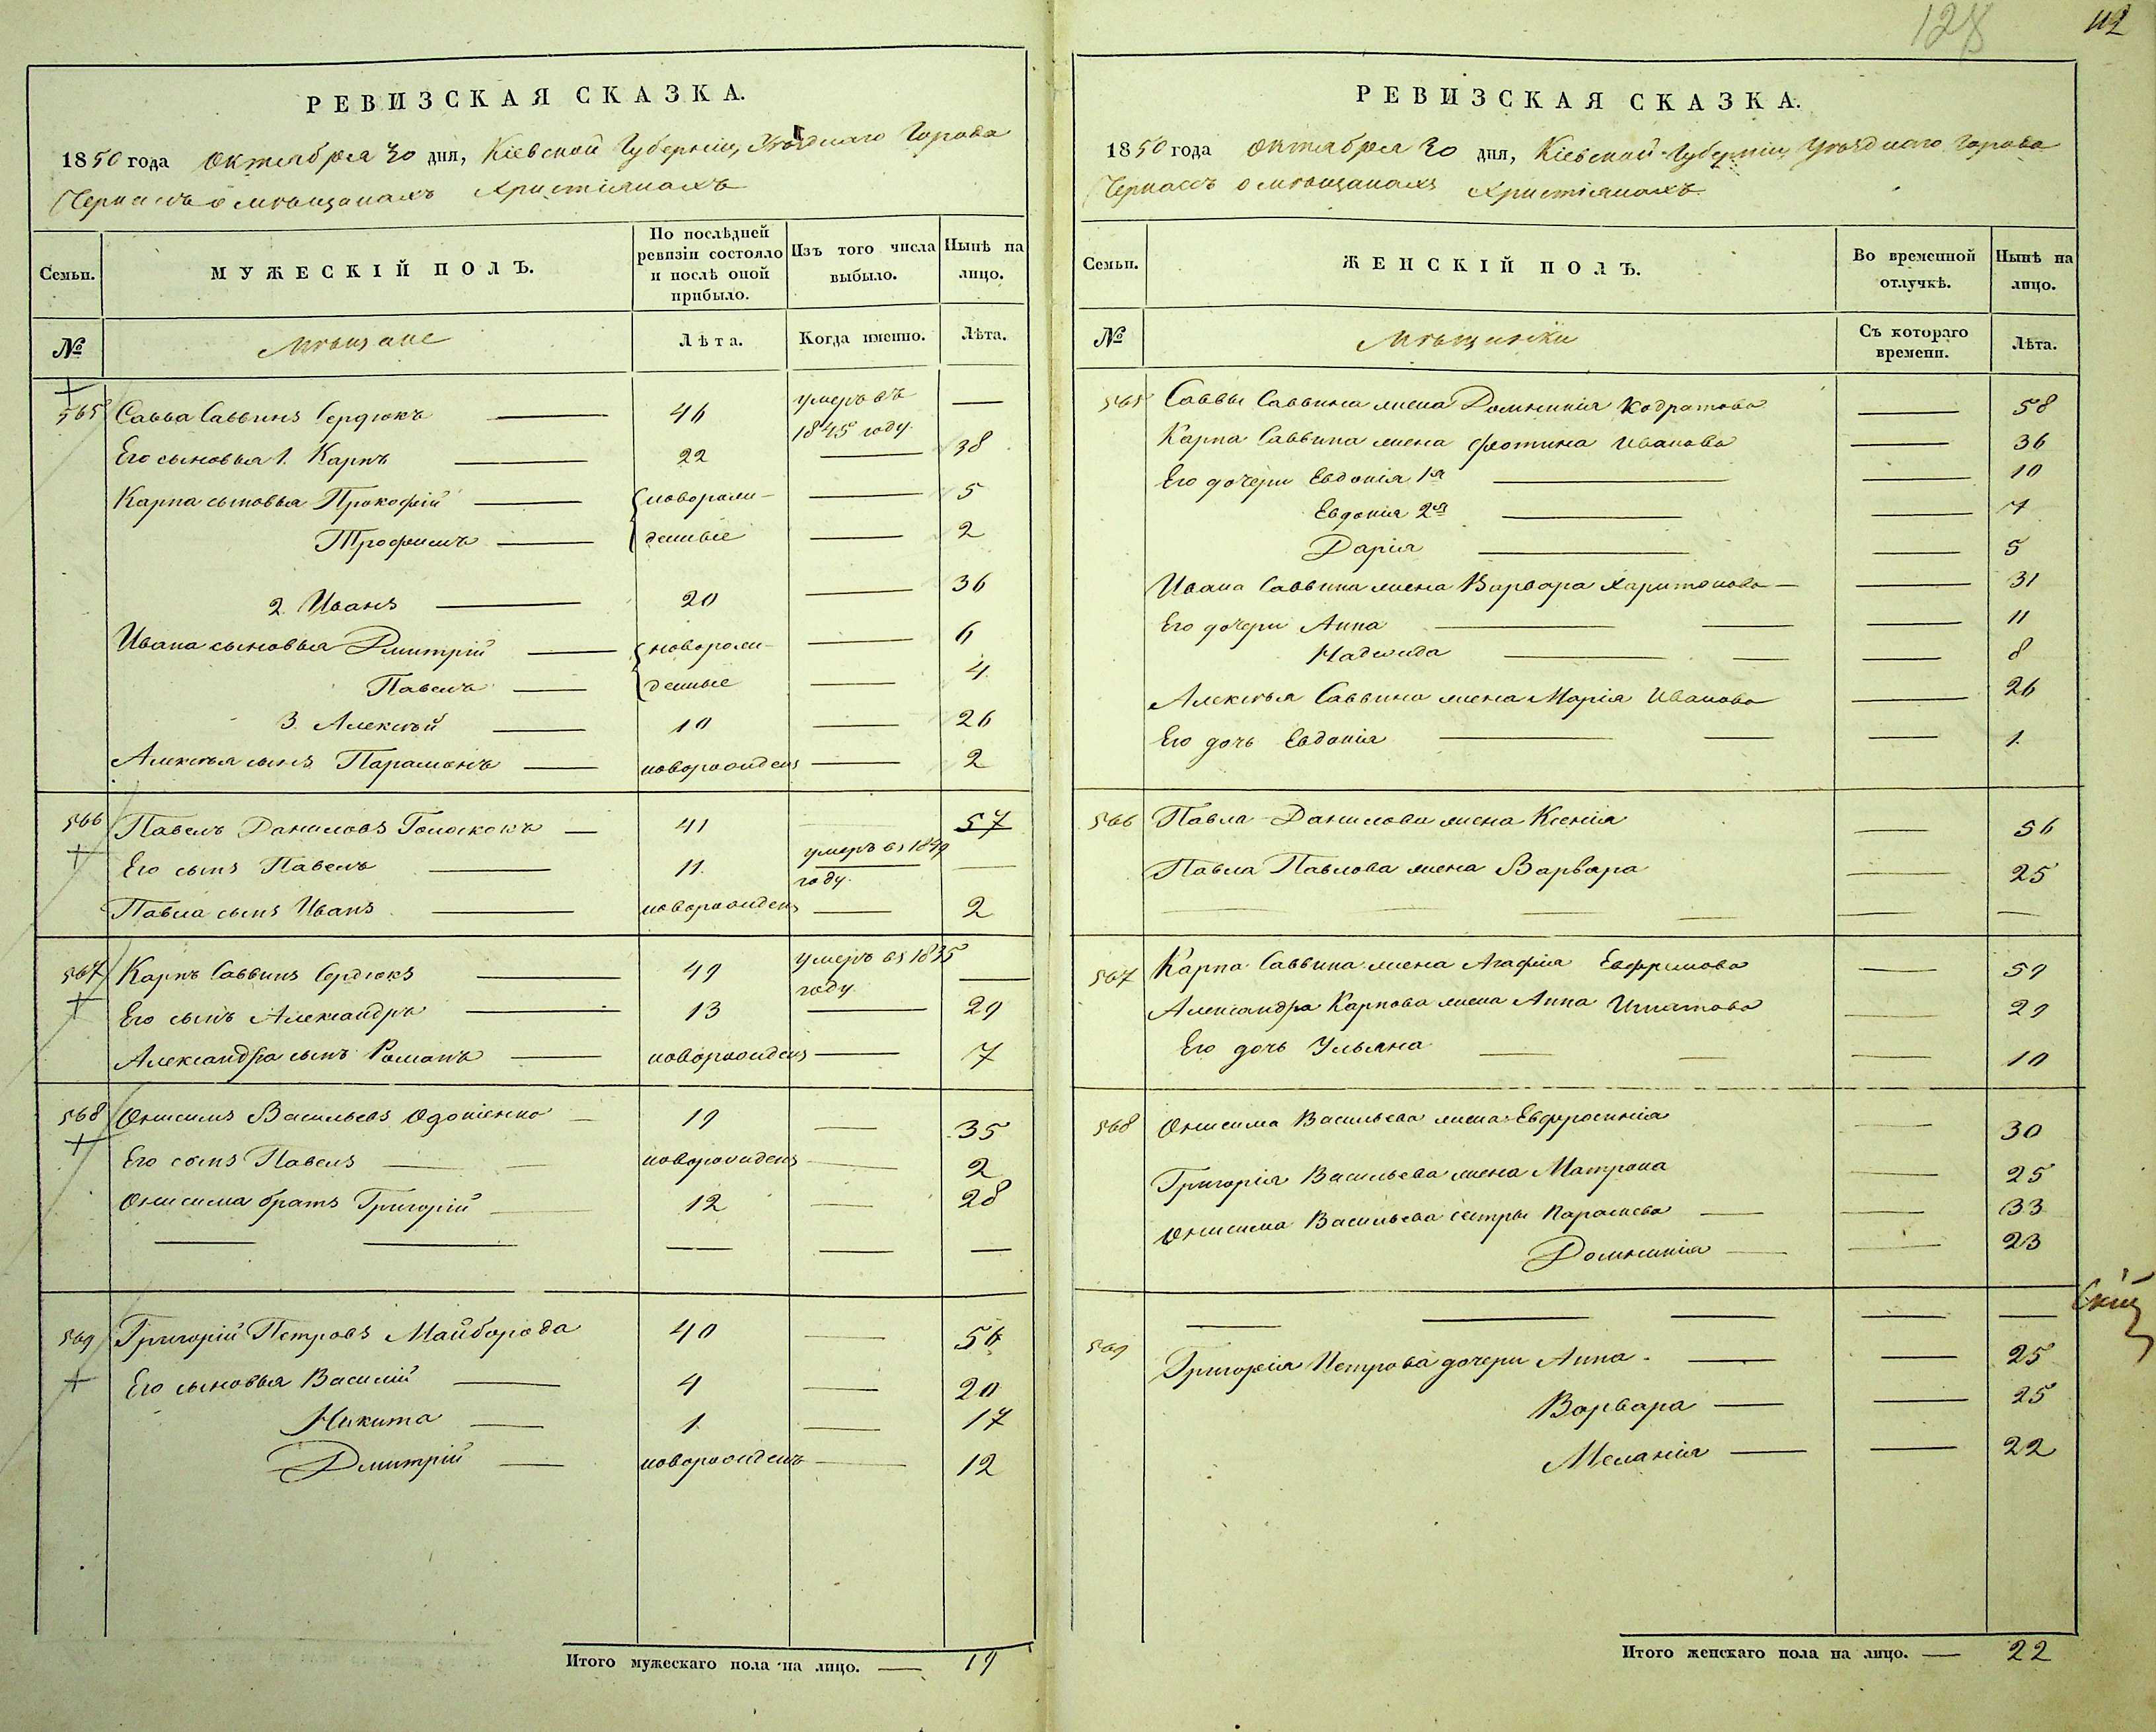 128
112
РЕВИЗСКАЯ СКАЗКА.
1850 года Октября 30 дня, Кіевской Губерніи, Уѣзднаго Города
Черкасъ о мѣщанахъ Христіянахъ
Семьи.
МУЖЕСКІЙ ПОЛЪ.
По послѣдней ревизіи состояло и послѣ оной прибыло.
Изъ того числа выбыло.
Нынѣ на лицо.
№
Мѣщане
Лѣта.
Когда именно.
Лѣта.
565 Савва Саввинъ Сердюкъ — 46 умеръ въ 1845 году. —
Его сыновья 1. Карпъ — 22 — 38
Карпа сыновья Прокофій — новорож- — 5
Трофимъ — денные — 2
2. Иванъ — 20 — 36
Ивана сыновья Дмитрій — новорож- — 6
Павелъ — денные — 4
3. Алексѣй — 10 — 26
Алексѣя сынъ Парамонъ — новорожденъ — 2
566 Павелъ Даниловъ — 41 57
Его сынъ Павелъ — 11. умеръ въ 1849 году. —
Павла сынъ Иванъ — новорожденъ — 2
567 Карпъ Саввинъ Сердюкъ — 49 умеръ въ 1835 году. —
Его сынъ Александръ — 13 — 29
Александра сынъ Романъ — новорожденъ — 7
568 Онисимъ Васильевъ Одоніенко — 19 — 35
Его сынъ Павелъ — новорожденъ — 2
Онисима братъ Григорій — 12 — 28
— — — — —
569 Григорій Петровъ Майборода 40 — 56
Его сыновья Василій — 4 — 20
Никита — 1. — 17
Дмитрій — новорожденъ — 12
Итого мужескаго пола на лицо. — 19
РЕВИЗСКАЯ СКАЗКА.
1850 года Октября 30 дня, Кіевской Губерніи Уѣзднаго Города
Черкасъ о мѣщанахъ Христіянахъ.
Семьи.
ЖЕНСКІЙ ПОЛЪ.
Во временной отлучкѣ.
Нынѣ на лицо.
№
Мѣщанки
Съ котораго времени.
Лѣта.
565 Саввы Саввина жена Домникія Кодратова — 58
Карпа Саввина жена Фотина Иванова — 36
Его дочери Евдокія 1я — — 10
Евдокія 2я — — 7
Дарія — — 5
Ивана Саввина жена Варвара Харитонова — — 31
Его дочери Анна — — — 11
Надежда — — — 8
Алексѣя Саввина жена Марія Иванова — 26
Его дочь Евдокія — — — 1.
566 Павла Данилова жена Ксенія — 56
Павла Павлова жена Варвара — 25
— — — — — —
567 Карпа Саввина жена Агафія Евфимова — 59
Александра Карпова жена Анна Игнатова — 29
Его дочь Ульяна — — — 10
568 Онисима Васильева жена Евфросинія — 30
Григорія Васильева жена Матрона — 25
Онисима Васильева сестры Параскева — — 33
Домникія — — 23
— — — — —
569 Григорія Петрова дочери Анна. — — 25
Варвара — — 25
Меланія — — 22
Итого женскаго пола на лицо. — 22